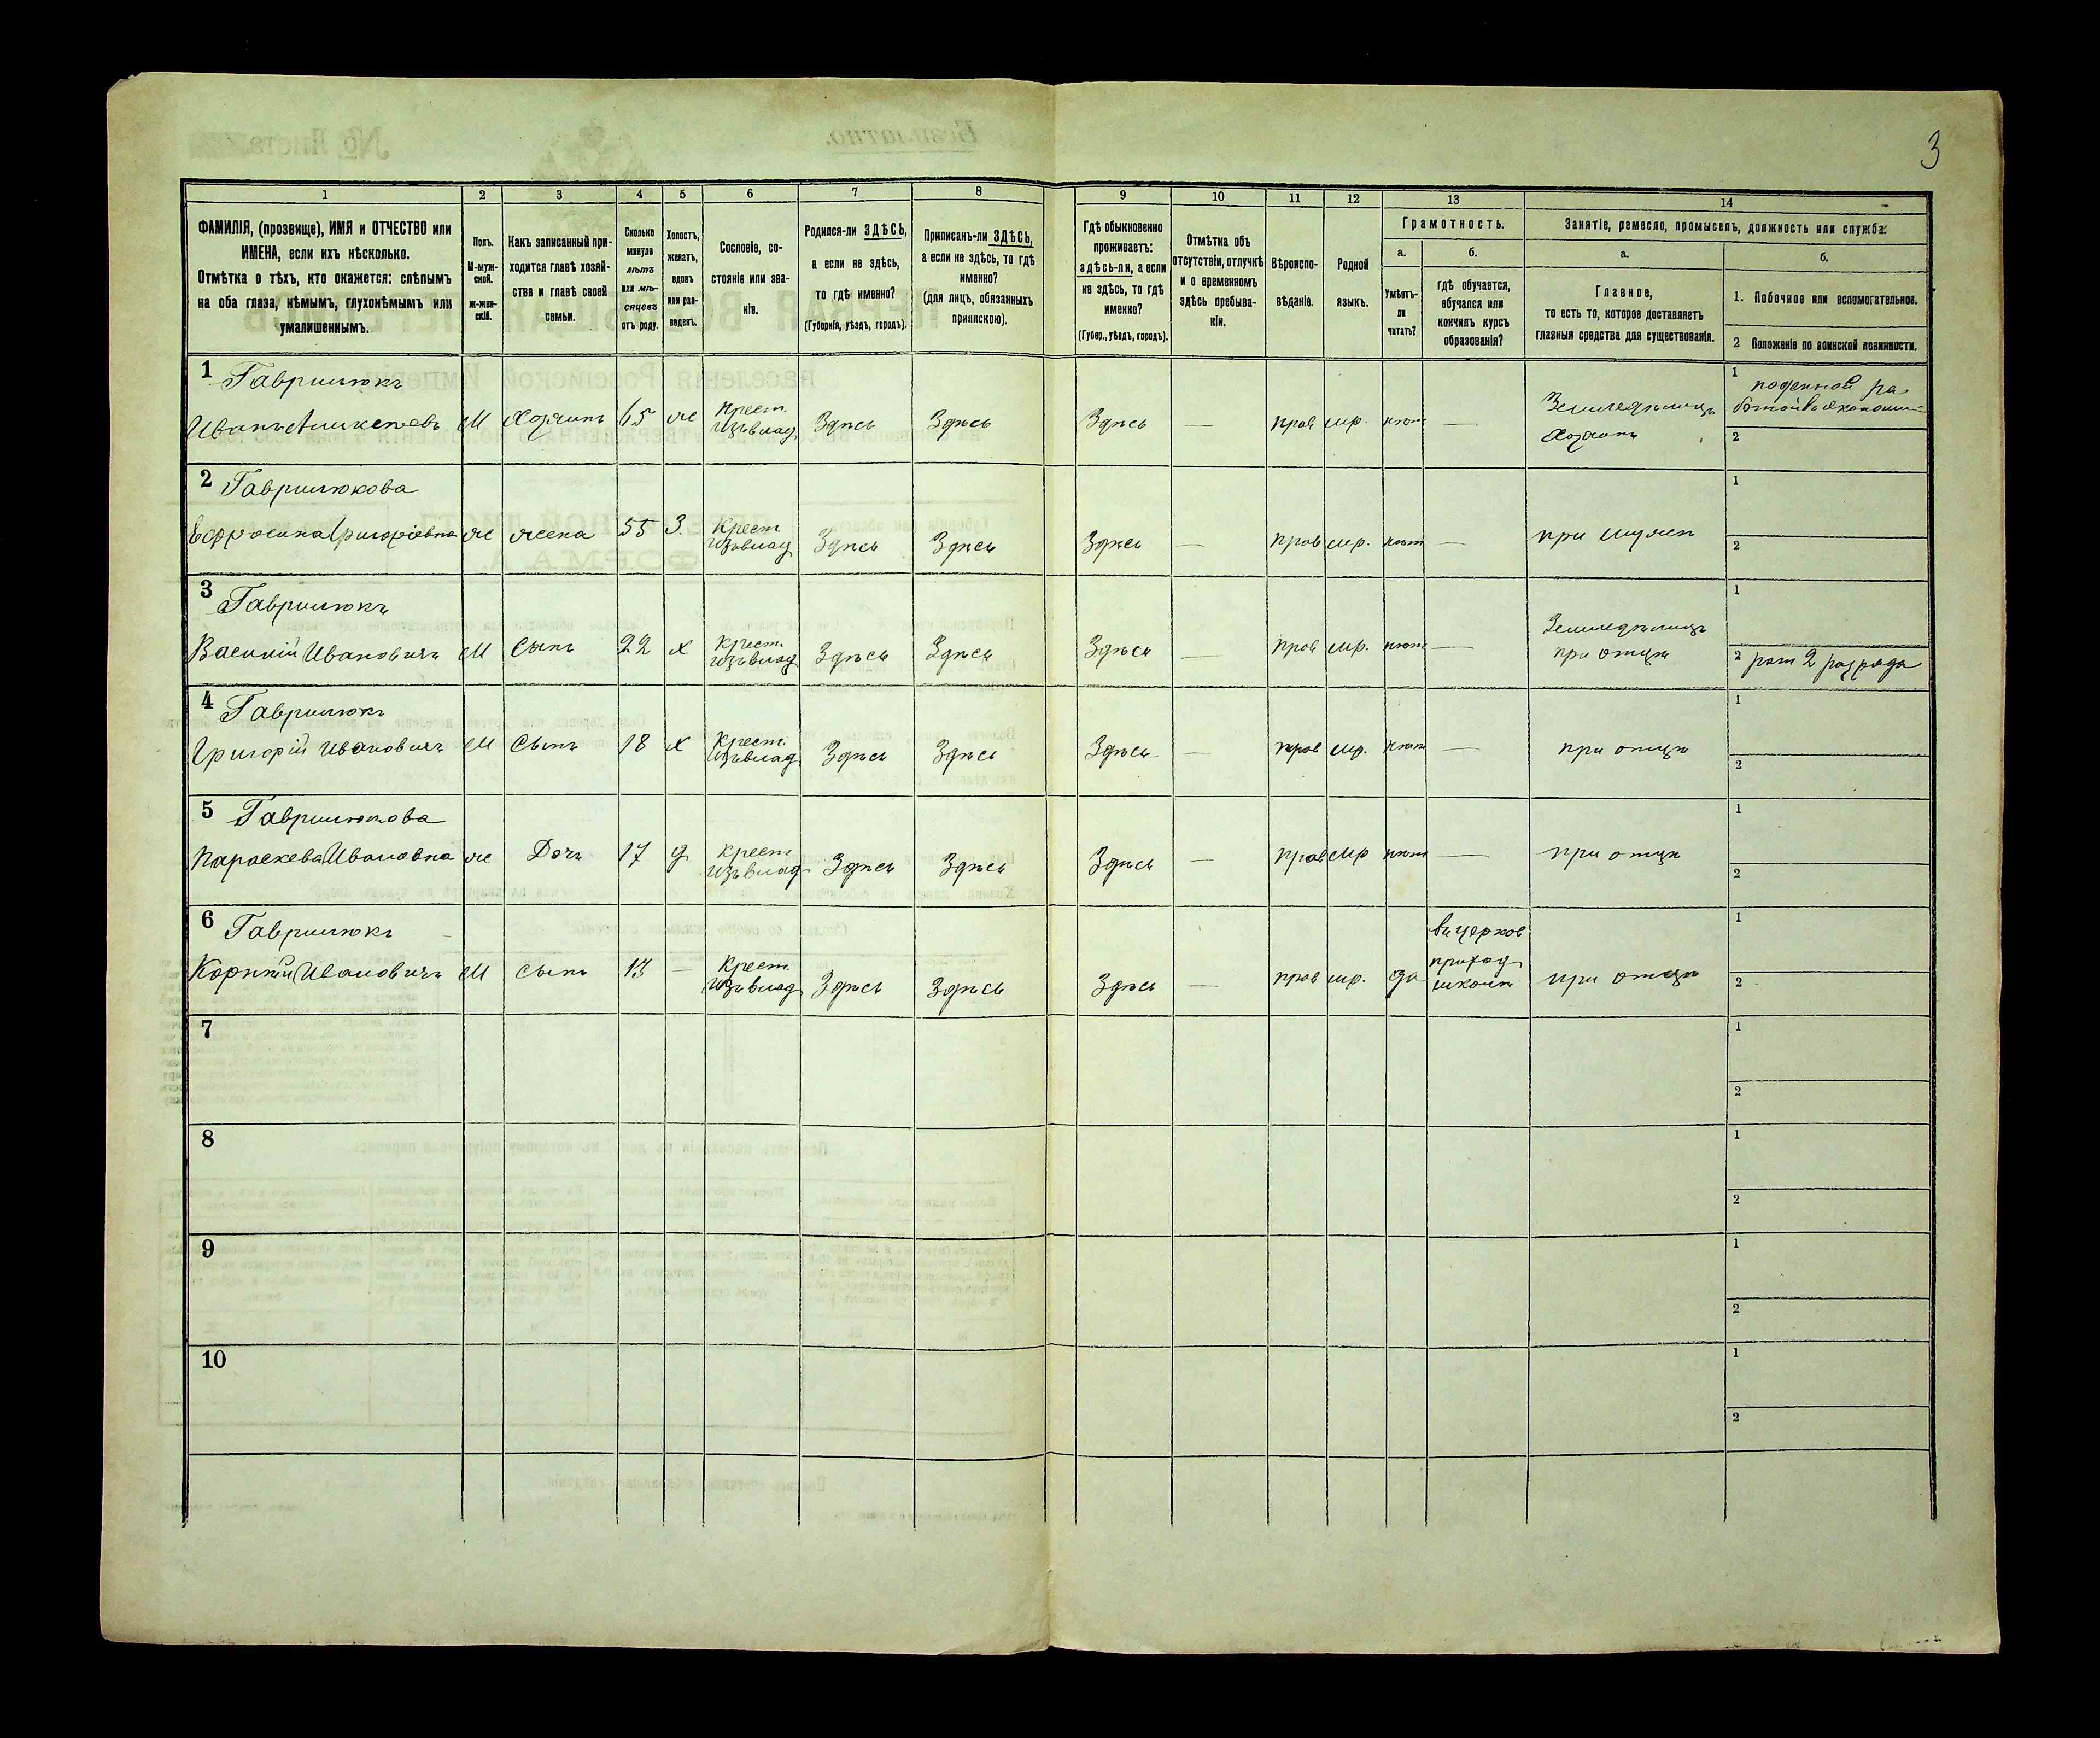 3
1 2 3 4 5 6 7 8 9 10 11 12 13 14
ФАМИЛІЯ, (прозвище), ИМЯ и ОТЧЕСТВО или
ИМЕНА, если ихъ нѣсколько.
Отмѣтка о тѣхъ, кто окажется: слѣпымъ
на оба глаза, нѣмымъ, глухонѣмымъ или
умалишеннымъ.
Полъ.
М-муж-
ской.
ж-жен-
скій.
Какъ записанный при-
ходится главѣ хозяй-
ства и главѣ своей
семьи.
Сколько
минуло
лѣтъ
или мѣ-
сяцевъ
отъ роду.
Холостъ,
женатъ,
вдовъ
или раз-
веденъ.
Сословіе, со-
стояніе или зва-
ніе.
Родился-ли ЗДѢСЬ,
а если не здѣсь,
то гдѣ именно?
(Губернія, уѣздъ, городъ).
Приписанъ-ли ЗДѢСЬ,
а если не здѣсь, то гдѣ
именно?
(для лицъ, обязанныхъ
припискою).
Гдѣ обыкновенно
проживаетъ:
здѣсь-ли, а если
не здѣсь, то гдѣ
именно?
(Губер., уѣздъ, городъ).
Отмѣтка объ
отсутствіи, отлучкѣ
и о временномъ
здѣсь пребыва-
ніи.
Вѣроиспо-
вѣданіе.
Родной
языкъ.
Грамотность.
а.
Умѣетъ-
ли
читать?
б.
гдѣ обучается,
обучался или
кончилъ курсъ
образованія?
Занятіе, ремесло, промыселъ, должность или служба:
а.
Главное,
то есть то, которое доставляетъ
главныя средства для существованія.
б.
1. Побочное или вспомогательное.
2 Положеніе по воинской повинности.
1 Гаврилюкъ 1 поденной ра-
Иванъ М Хозяинъ 65 ж Крест. Здѣсь Здѣсь Здѣсь — прав мр. нѣт — Земледѣлецъ
изъ влад. хозяинъ 2
2 Гаврилюкова 1
Ефросина Григоріевна ж жена 55 З. Крест Здѣсь Здѣсь Здѣсь — прав мр. нѣт — при мужѣ 2
изъ влад
3 Гаврилюкъ 1
Василій Ивановичъ М Сынъ 22 х Крест. Здѣсь Здѣсь Здѣсь — прав мр. нѣт — Земледѣлецъ
изъ влад при отцѣ 2 рат 2 разряда
4 Гаврилюкъ 1
Григорій Ивановичъ М Сынъ 18 х Крест. Здѣсь Здѣсь Здѣсь — прав мр. нѣт — при отцѣ 2
изъ влад
5 Гаврилюкова 1
Параскева Ивановна ж Дочь 17 д Крест Здѣсь Здѣсь Здѣсь — прав мр нѣт — при отцѣ 2
изъ влад
6 Гаврилюкъ въ церков 1
Корнѣй Ивановичъ М сынъ 13 — Крест. Здѣсь Здѣсь Здѣсь — прав мр. да приход при отцѣ 2
изъ влад школѣ
7 1
2
8 1
2
9 1
2
10 1
2